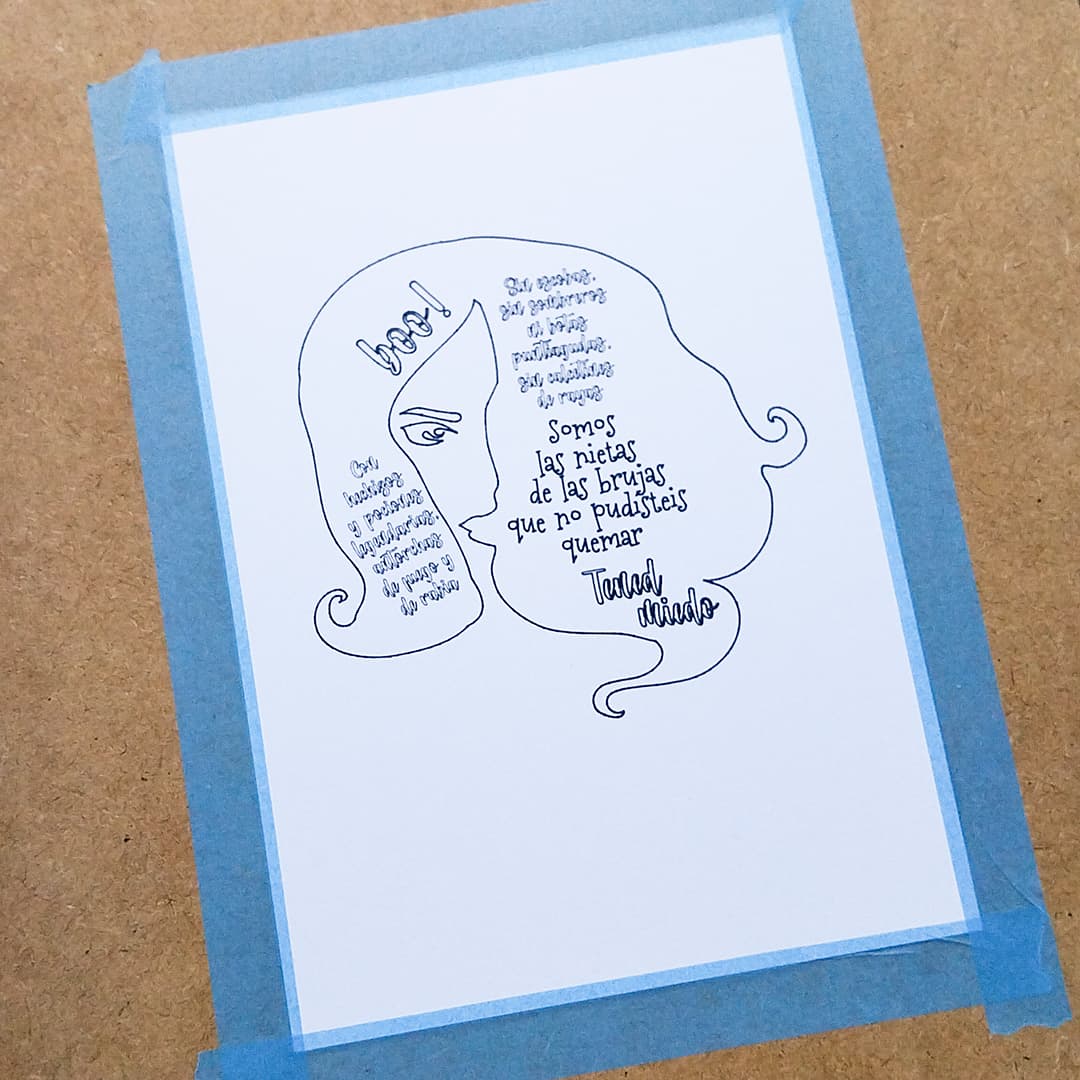 boo!
Sin escobas,
sin sombreros
ni botas
puntiagudas,
sin calcetines
de rayas
Somos
las nietas
de las brujas
que no pudisteis
quemar
Tened
miedo
Con
hechizos
y pociones
legendarias,
antorchas
de fuego y
de rabia